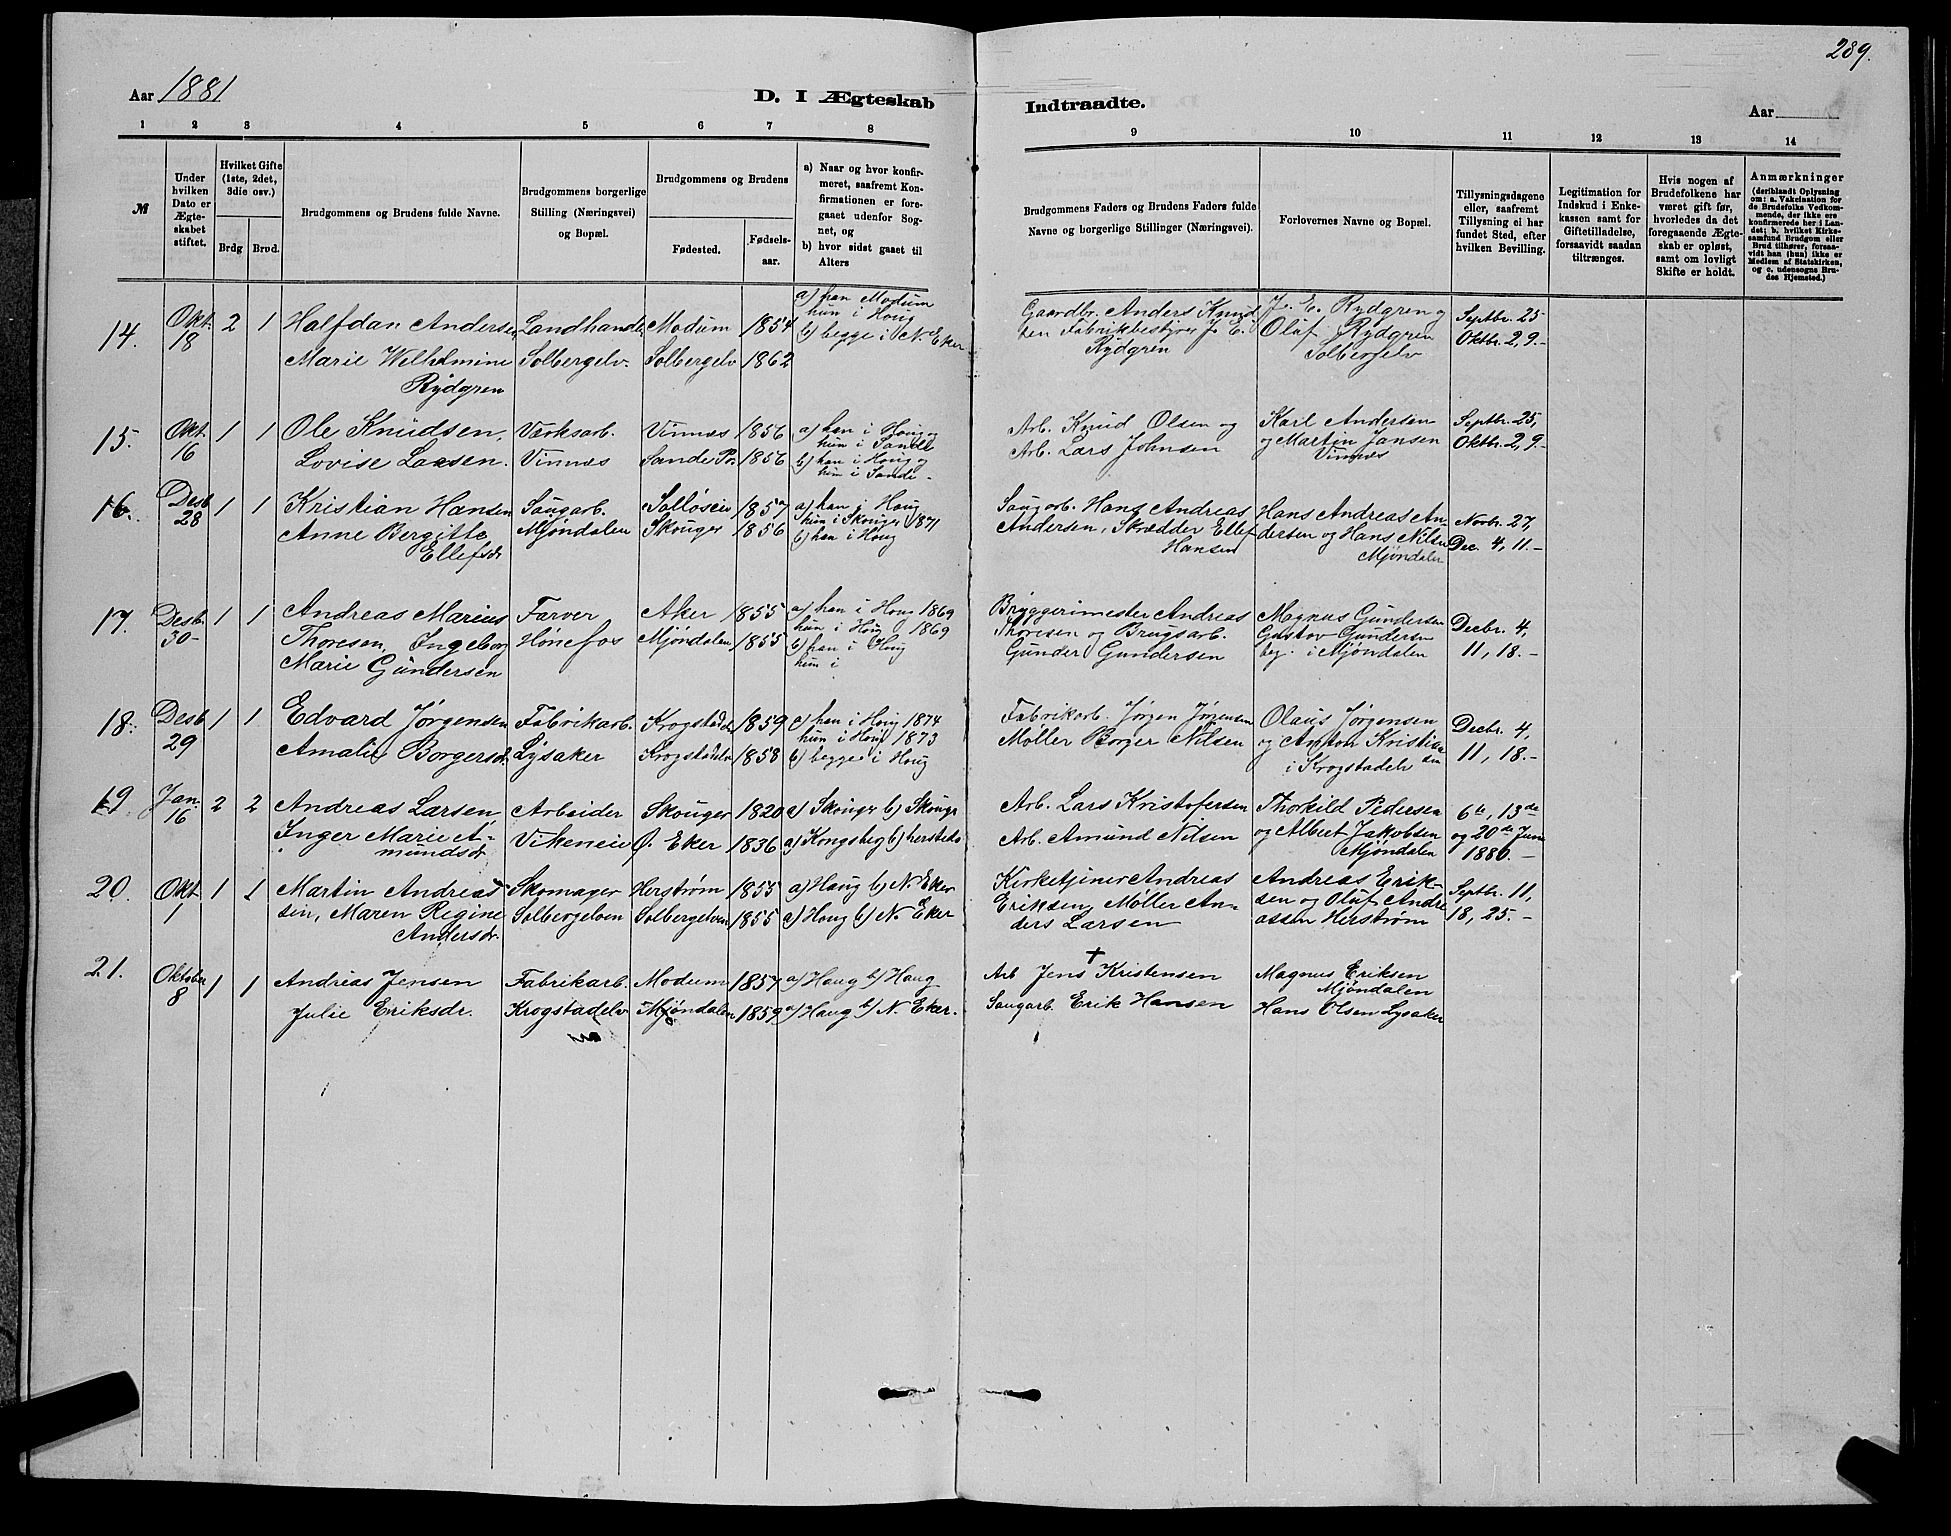 289.
Aar 1881
D. I Ægteskab
Indtraadte.
Aar
1 2 3 4 5 6 7 8
9 10 11 12 13 14
№
Under hvilken Dato er Ægteskabet stiftet.
Hvilket Gifte (1ste, 2det, 3die osv.)
Brdg Brud.
Brudgommens og Brudens fulde Navne.
Brudgommens borgerlige Stilling (Næringsvei) og Bopæl.
Brudgommens og Brudens
Fødested.
Fødselsaar.
a) Naar og hvor konfirmeret, saafremt Konfirmationen er foregaaet udenfor Sognet, og
b) hvor sidst gaaet til Alters
Brudgommens Faders og Brudens Faders fulde Navne og borgerlige Stillinger (Næringsvei).
Forlovernes Navne og Bopæl.
Tillysningsdagene eller, saafremt Tillysning ei har fundet Sted, efter hvilken Bevilling.
Legitimation for Indskud i Enkekassen samt for Giftetilladelse, forsaavidt saadan tiltrænges.
Hvis nogen af Brudefolkene har været gift før, hvorledes da det foregaaende Ægteskab er opløst, samt om lovligt Skifte er holdt.
Anmærkninger
(deriblandt Oplysning om: a. Vakcination for de Brudefolks Vedkommende, der ikke ere konfirmerede her i Landet; b. hvilket Kirkesamfund Brudgom eller Brud tilhører, forsaavidt han (hun) ikke er Medlem af Statskirken, og c. udensogns Brudes Hjemsted.)
14. Okt. 18 2 1 Halfdan Andersen Landhandl. Modum 1854 a) han Modum hun i Houg
Marie Wilhelmine Rydgren Solbergelv. Solbergelv 1862 b) begge i N. Eker
Gaardbr. Anders Knudsen Fabrikbestyrer J. E. Rydgren
J. E. Rydgren og Oluf Rydgren Solbergelv
Septbr. 25 Oktbr. 2, 9.-
15. Okt. 16 1 1 Ole Knudsen, Værksarb. Vinnæs 1856 a) han i Houg og hun i Sande
Lovise Larsen. Vinnæs Sande Pr. 1856 b) han i Houg og hun i Sande.
Arb. Knud Olsen og Arb. Lars Johnsen
Karl Andersen og Martin Jansen Vinnæs
Septbr. 25, Oktbr. 2, 9.-
16. Desb. 28 1 1 Kristian Hansen Saugarb. 1857 a) han i Houg hun i Skouger 1871
Anne Bergitte Ellefsdr Mjøndalen Skouger 1856 b) han i Houg
Saugarb. Hans Andreas Andersen, Skrædder Ellef Hansen
Hans Andreas Andersen og Hans Nilsen Mjøndalen
Novbr. 27, Dec. 4, 11.-
17. Desb. 30- 1 1 Andreas Marius Farver Aker 1855 a) han i Houg 1869 hun i Houg 1869
Thoresen, Ingeborg Marie Gundersen Hønefos Mjøndalen 1855 b) han i Houg hun i
Bryggerimester Andreas Thoresen og Brugsarb. Gunder Gundersen
Magnus Gundersen Gustav Gundersen beg. i Mjøndalen
Decbr. 4, 11, 18.-
18. Desb 29 1 1 Edvard Jørgensen Fabrikarb. Krogstadelv 1859 a) han i Houg 1874 hun i Houg 1873
Amalie Borgersdr. Lysaker Krogstadelv 1858 b) begge i Houg
Fabrikarb. Jørgen Jørgensen Møller Borger Nilsen
Olaus Jørgensen og Anton Kristiansen i Krogstadelv
Decbr. 4, 11, 18.-
19. Jan. 16 2 2 Andreas Larsen Arbeider Skouger 1820 a) Skouger b) Skouger
Inger Marie Amundsdr Vikeneie Ø. Eker 1836 a) Kongsberg b) hersteds
Arb. Lars Kristofersen
Arb. Amund Nilsen
Thorkild Pedersen og Albert Jakobsen Mjøndalen
6te, 13de og 20de Juni 1880.-
20. Okt. 1 1 1 Martin Andreassen, Skomager Herstrøm 1855 a) Haug b) N. Eker
Maren Regine Andersdr. Solbergelven Solbergelven 1855 a) Houg b) N. Eker
Kirketjener Andreas Eriksen, Møller Anders Larsen
Andreas Eriksen og Oluf Andreassen Herstrøm
Septbr. 11, 18, 25.-
21. Oktober 8 1 1 Andreas Jensen Fabrikarb. Modum 1857 a) Haug b) Haug
Julie Eriksdr. Krogstadelv Mjøndalen 1859 a) Haug b) N. Eker.
Arb Jens Kristensen
Saugarb. Erik Hansen
Magnus Eriksen Mjøndalen
Hans Olsen Lysaker